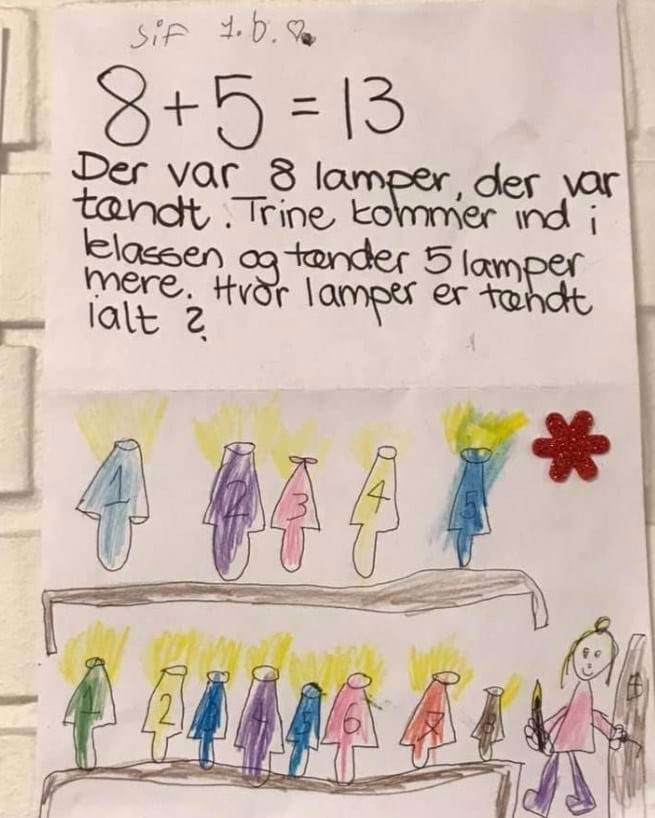 sif 1.b.
8+5=13
Der var 8 lamper, der var
tændt. Trine kommer ind i
klassen og tænder 5 lamper
mere. Hvor lamper er tændt
ialt ?
1 2 3 4 5
1 2 3 4 5 6 7 8